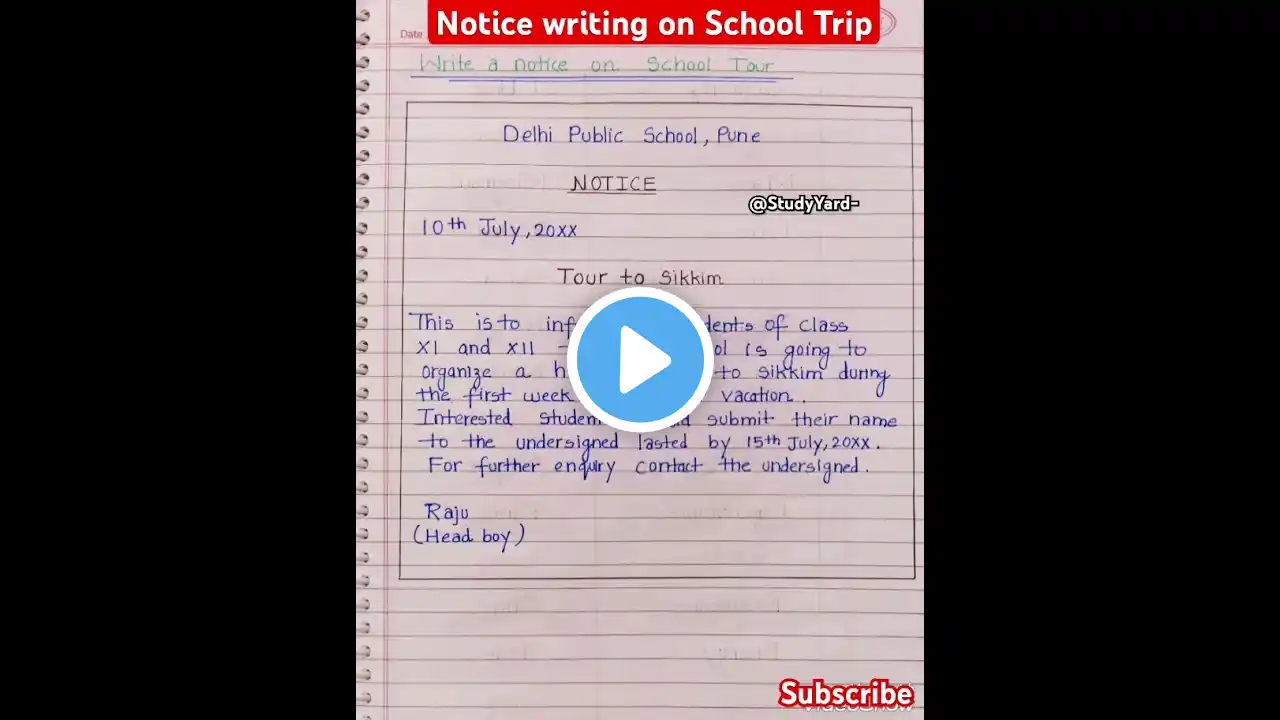 Notice writing on School Trip
Date
Write a notice on School Tour
Delhi Public School, Pune
NOTICE
@StudyYard-
10th July, 20xx
Tour to Sikkim
This is to of class
XI and XII is going to
organize a to sikkim during
the first week vacation.
Interested submit their name
to the undersigned lasted by 15th July, 20xx.
For further enquiry contact the undersigned.
Raju
(Head boy)
Subscribe